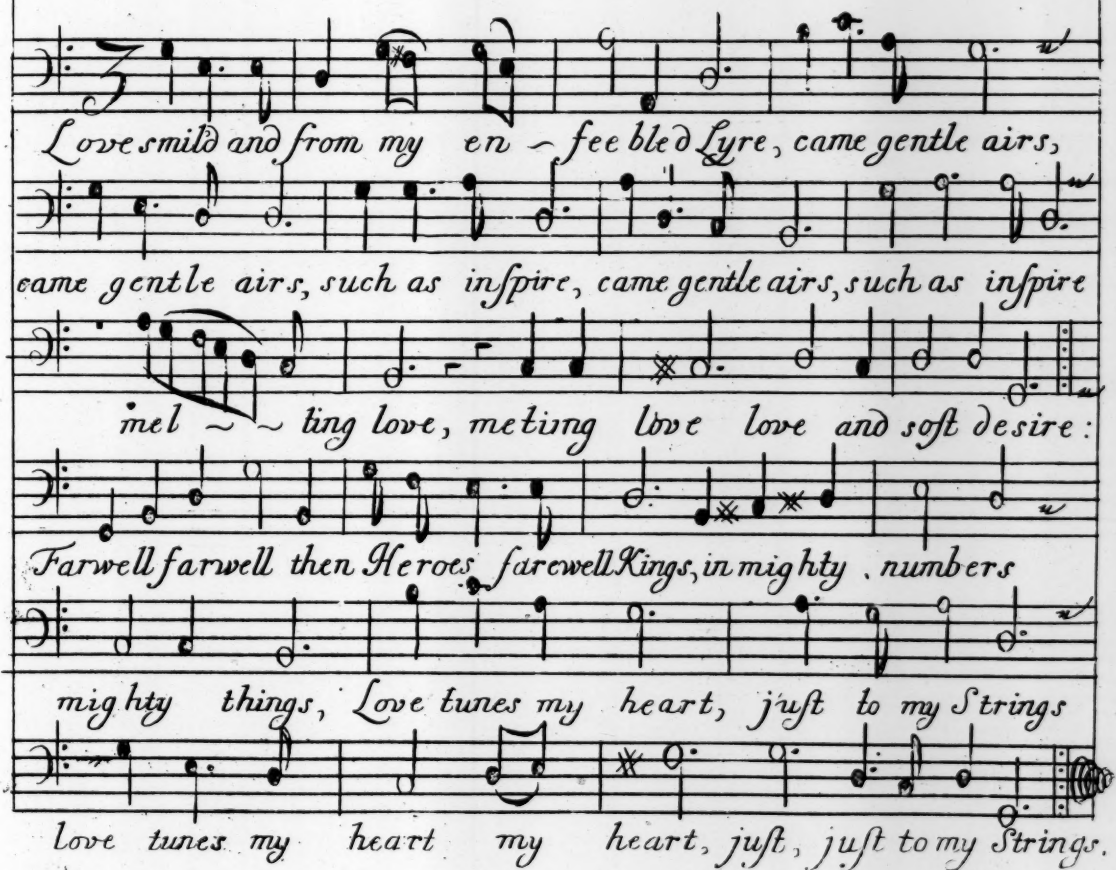 Love smild and from my en ~ feebled Lyre, came gentle airs,
came gentle airs, such as inſpire, came gentle airs, such as inſpire
mel ~ ~ ting love, meting love love and soft desire:
Farwell farwell then Heroes farewell Kings, in mighty numbers
mighty things, Love tunes my heart, juſt to my Strings
love tunes my heart my heart, juſt, juſt to my Strings.